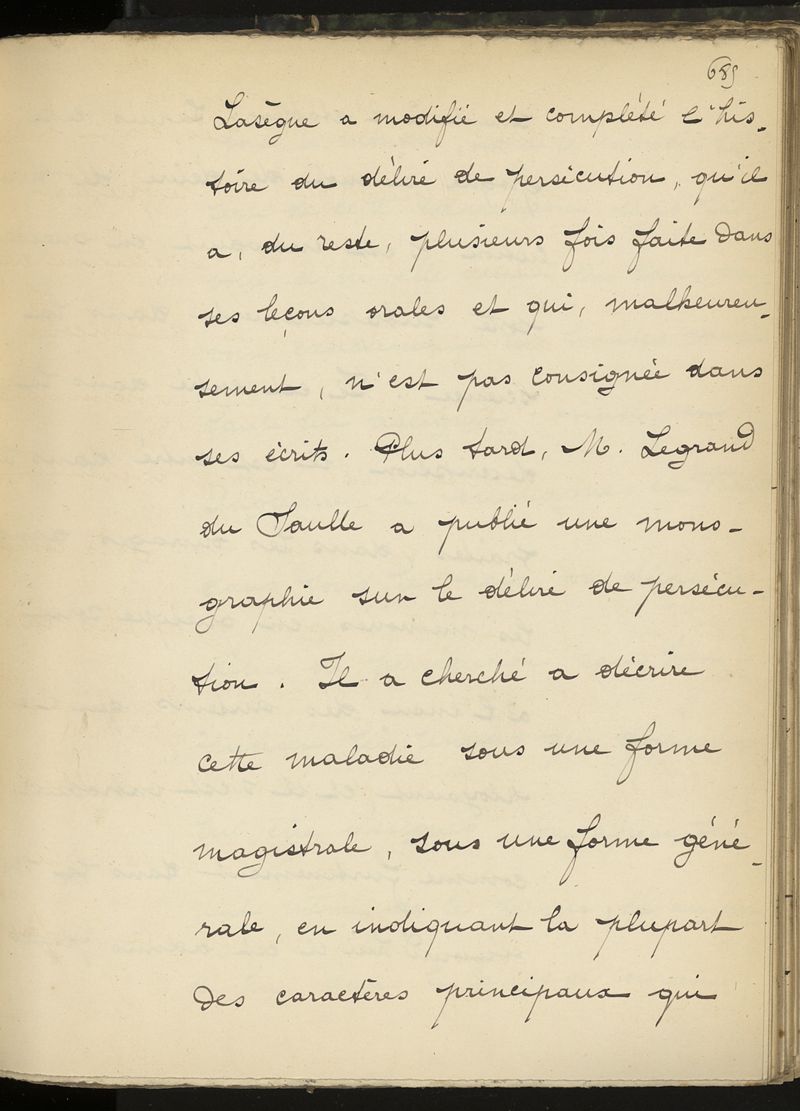 685
Lasègue a modifié et complété l'his-
toire du délire de persécution, qu'il
a, du reste, plusieurs fois faite dans
ses leçons orales et qui, malheureu-
sement, n'est pas consignée dans
ses écrits. Plus tard, M. Legrand
du Saulle a publié une mono-
graphie sur le délire de persécu-
tion. Il a cherché a décrire
cette maladie sous une forme
magistrale, sous une forme géné-
rale, en indiquant la plupart
des caractères principaux qui